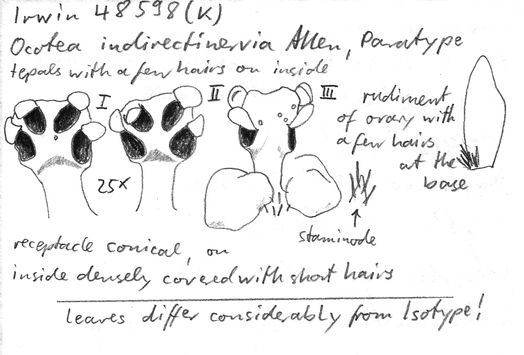 Irwin 48598 (K)
Ocotea indirectinervia Allen, Paratype
tepals with a few hairs on inside
I
II
III
25x
rudiment
of ovary with
a few hairs
at the
base
staminode
receptacle conical, on
inside densely covered with short hairs
leaves differ considerably from Isotype!